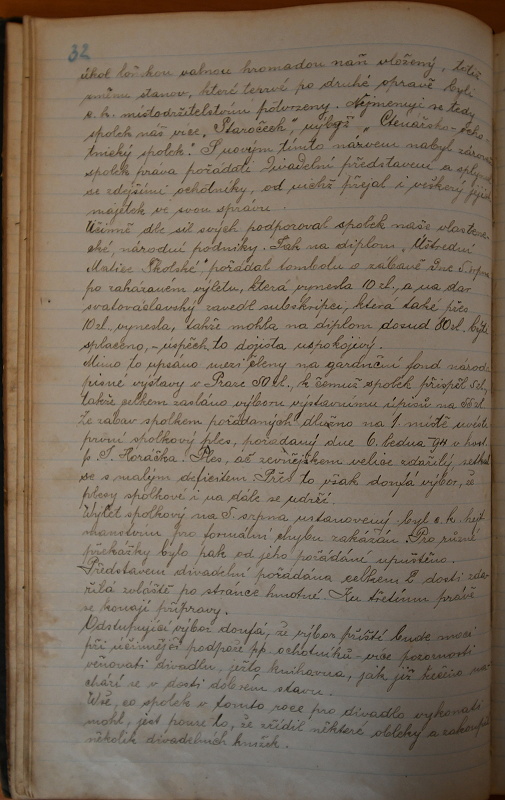 32
úkol loňskou valnou hromadou naň vložený, totiž
změnu stanov, které teprvé po druhé opravě byly
c. k. místodržitelstvím potvrzeny. Nejmenuje se tedy
spolek náš více „Staročech", nýbrž „Čtenářsko-ocho-
tnický spolek." S novým tímto názvem nabyl zároveň
spolek práva pořádati divadelní představení a splynul
se zdejšími ochotníky, od nichž přejal i veškerý jejich
majetek ve svou správu.
Účinně dle sil svých podporoval spolek naše vlastene-
cké, národní podniky. Tak na diplom „Ústřední
Matice Školské", pořádal tombolu o zábavě dne 5. srpna
po zakázaném výletu, která vynesla 10 zl., a na dar
svatováclavský zavedl subskripci, která také přes
10 zl. vynesla, takže mohla na diplom dosud 80 zl. býti
splaceno, – úspěch to dojista uspokojivý.
Mimo to upsáno mezi členy na garanční fond národo-
pisné výstavy v Praze 50 zl., k čemuž spolek přispěl 5 zl.,
takže celkem zasláno výboru výstavnímu úpisů na 55 zl.
Ze zábav spolkem pořádaných dlužno na 1. místě uvésti
první spolkový ples, pořádaný dne 6. ledna 94 v host.
p. J. Horáčka. Ples, ač zevnějškem velice zdařilý setkal
se s malým deficitem. Přes to však doufá výbor, že
plesy spolkové i na dále se udrží.
Výlet spolkový na 5. srpna ustanovený byl c. k. hejt-
manstvím pro formální chybu zakázán. Pro různé
překážky bylo pak od jeho pořádání upuštěno.
Představení divadelní pořádána celkem 2, dosti zda-
řilá zvláště po stránce hmotné. Ku třetímu právě
se konají přípravy.
Odstupující výbor doufá, že výbor příští bude moci
při účinnější podpoře pp. ochotníků více pozornosti
věnovati divadlu, ježto knihovna, jak již řečeno na-
chází se v dosti dobrém stavu.
Vše, co spolek v tomto roce pro divadlo vykonati
mohl, jest pouze to, že zřídil některé obleky a zakoupil
několik divadelních knížek.